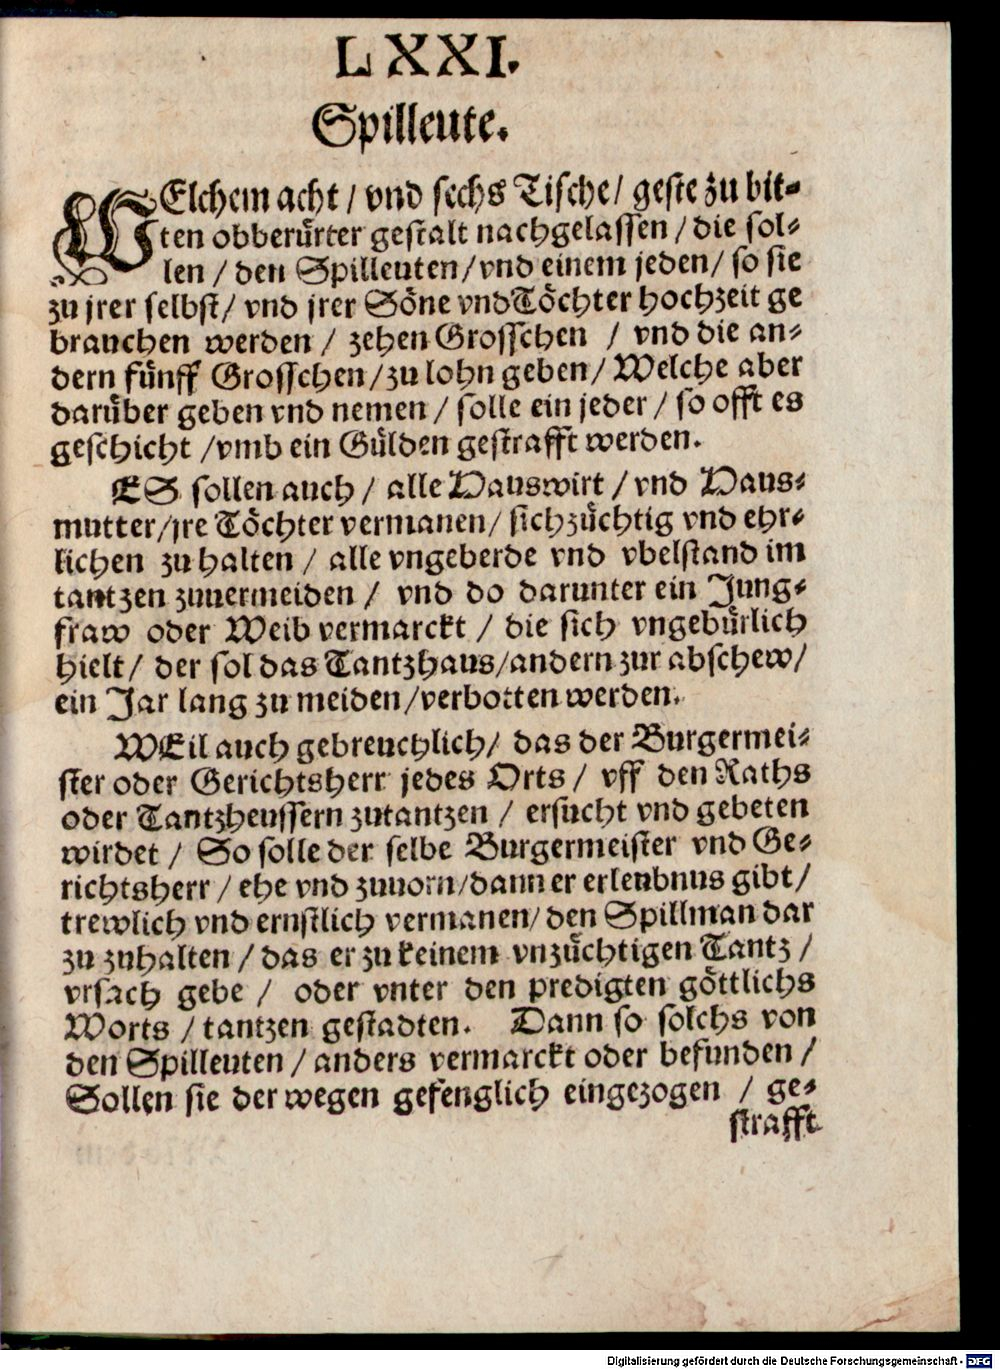 LXXI.
Spilleute.
WElchem acht / vnd sechs Tische / geste zu bit-
ten obberürter gestalt nachgelassen / die sol-
len / den Spilleuten / vnd einem jeden / so sie
zu jrer selbst / vnd jrer Söne vnd Töchter hochzeit ge
brauchen werden / zehen Grosschen / vnd die an-
dern fünff Grosschen / zu lohn geben / Welche aber
darüber geben vnd nemen / solle ein jeder / so offt es
geschicht / vmb ein Gülden gestrafft werden.
ES sollen auch / alle Hauswirt / vnd Haus-
mutter / jre Töchter vermanen / sich züchtig vnd ehr-
lichen zu halten / alle vngeberde vnd vbelstand im
tantzen zuuermeiden / vnd do darunter ein Jung-
fraw oder Weib vermarckt / die sich vngebürlich
hielt / der sol das Tantzhaus / andern zur abschew /
ein Jar lang zu meiden / verbotten werden.
WEil auch gebreuchlich / das der Burgermei-
ster oder Gerichtsherr jedes Orts / vff den Raths
oder Tantzheussern zutantzen / ersucht vnd gebeten
wirdet / So solle der selbe Burgermeister vnd Ge-
richtsherr / ehe vnd zuuorn / dann er erleubnus gibt /
trewlich vnd ernstlich vermanen / den Spillman dar
zu zuhalten / das er zu keinem vnzüchtigen Tantz /
vrsach gebe / oder vnter den predigten göttlichs
Worts / tantzen gestadten. Dann so solchs von
den Spilleuten / anders vermarckt oder befunden /
Sollen sie der wegen gefenglich eingezogen / ge-
strafft
Digitalisierung gefördert durch die Deutsche Forschungsgemeinschaft - DFG